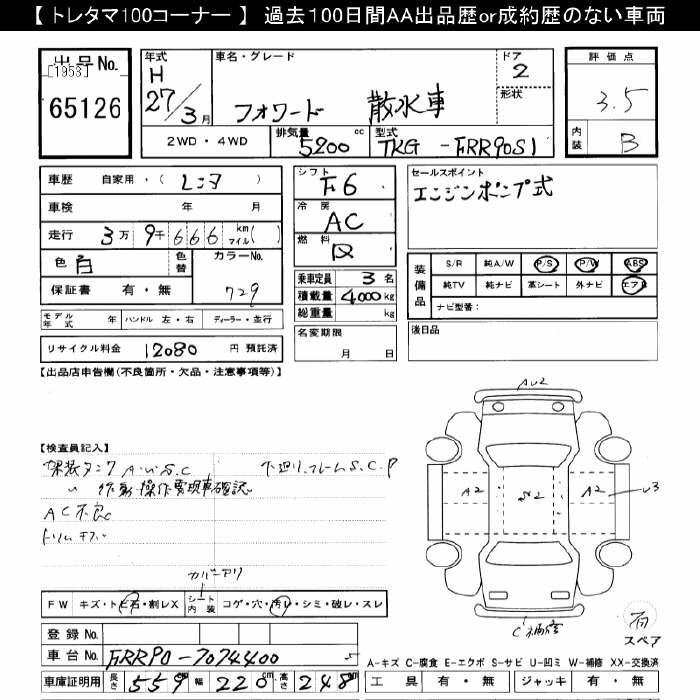 【 トレタマ100コーナー 】 過去100日間AA出品歴or成約歴のない車両
出品No.
[1953]
65126
年式
H
27/3月
車名・グレード
フォワード 散水車
ドア
2
形状
2WD・4WD
排気量
5200 cc
型式
TKG-FRR90S1
評価点
3.5
内装
B
車歴 自家用・( レンタ )
車検 年 月
走行 3万9千666 km マイル( )
色 白
色替
カラーNo.
729
保証書 有・無
モデル年式 年 ハンドル 左・右 ディーラー・並行
リサイクル料金 12080 円 預託済
シフト
F6
冷房
AC
燃料
乗車定員 3 名
積載量 4000 kg
総重量 kg
名変期限
月 日
セールスポイント
エンジンポンプ式
装備品
S/R 純A/W P/S P/W ABS
純TV 純ナビ 革シート 外ナビ エアB
ナビ型番:
後日品
【出品店申告欄(不良箇所・欠品・注意事項等)】
【検査員記入】
架装タンク A.U.S.C 下廻り.フレームS.C.P
〃 作動・操作要現車確認
AC不良
カバーアリ
FW キズ・トビ石・割レX
シート内装 コゲ・穴・汚レ・シミ・破レ・スレ
登録No.
車台No. FRR90-7074400 5
車庫証明用 長さ 559 cm 幅 220 cm 高さ 248 cm
AU2
A2
S2
A2
U3
C補修
有
スペア
A-キズ C-腐食 E-エクボ S-サビ U-凹ミ W-補修 XX-交換済
工具 有・無 ジャッキ 有・無